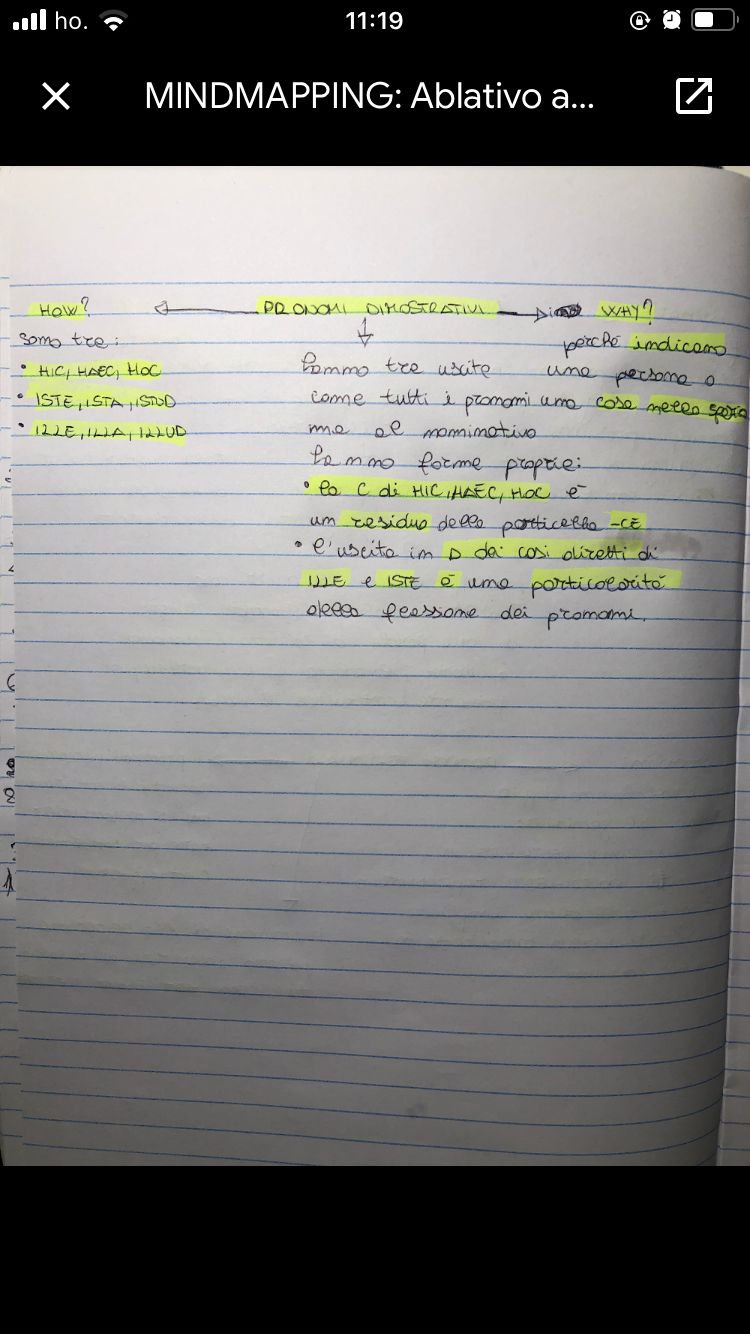 ho.
11:19
MINDMAPPING: Ablativo a...
HOW?
PRONOMI DIMOSTRATIVI
WHY?
Sono tre:
• HIC, HAEC, HOC
• ISTE, ISTA, ISTUD
• ILLE, ILLA, ILLUD
hanno tre uscite
come tutti i pronomi
ma al nominativo
hanno forme proprie:
• la C di HIC, HAEC, HOC è
un residuo della particella -CE
• l'uscita in D dei casi diretti di
ILLE e ISTE è una particolarità
della flessione dei pronomi.
perché indicano
una persona o
una cosa nello spazio